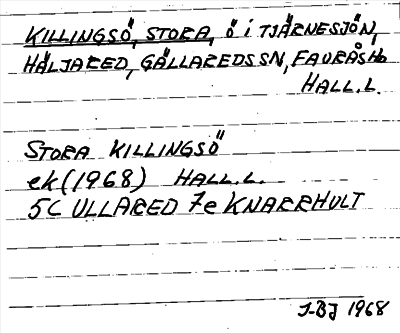 KILLINGSÖ, STORA, Ö i TJÄRNESJÖN,
HÄLJARED, GÄLLAREDS SN, FAURÅS Hb
HALL.L.
STORA KILLINGSÖ
ek (1968) HALL.L.
5C ULLARED 7e KNARRHULT
J-BJ 1968